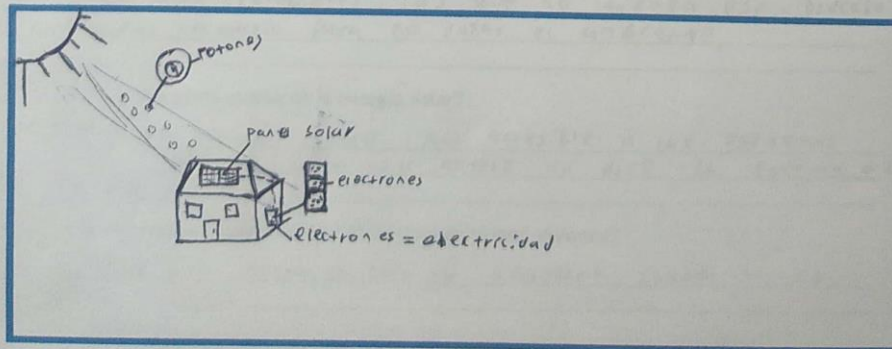 fotones
panel solar
electrones
electrones = electricidad